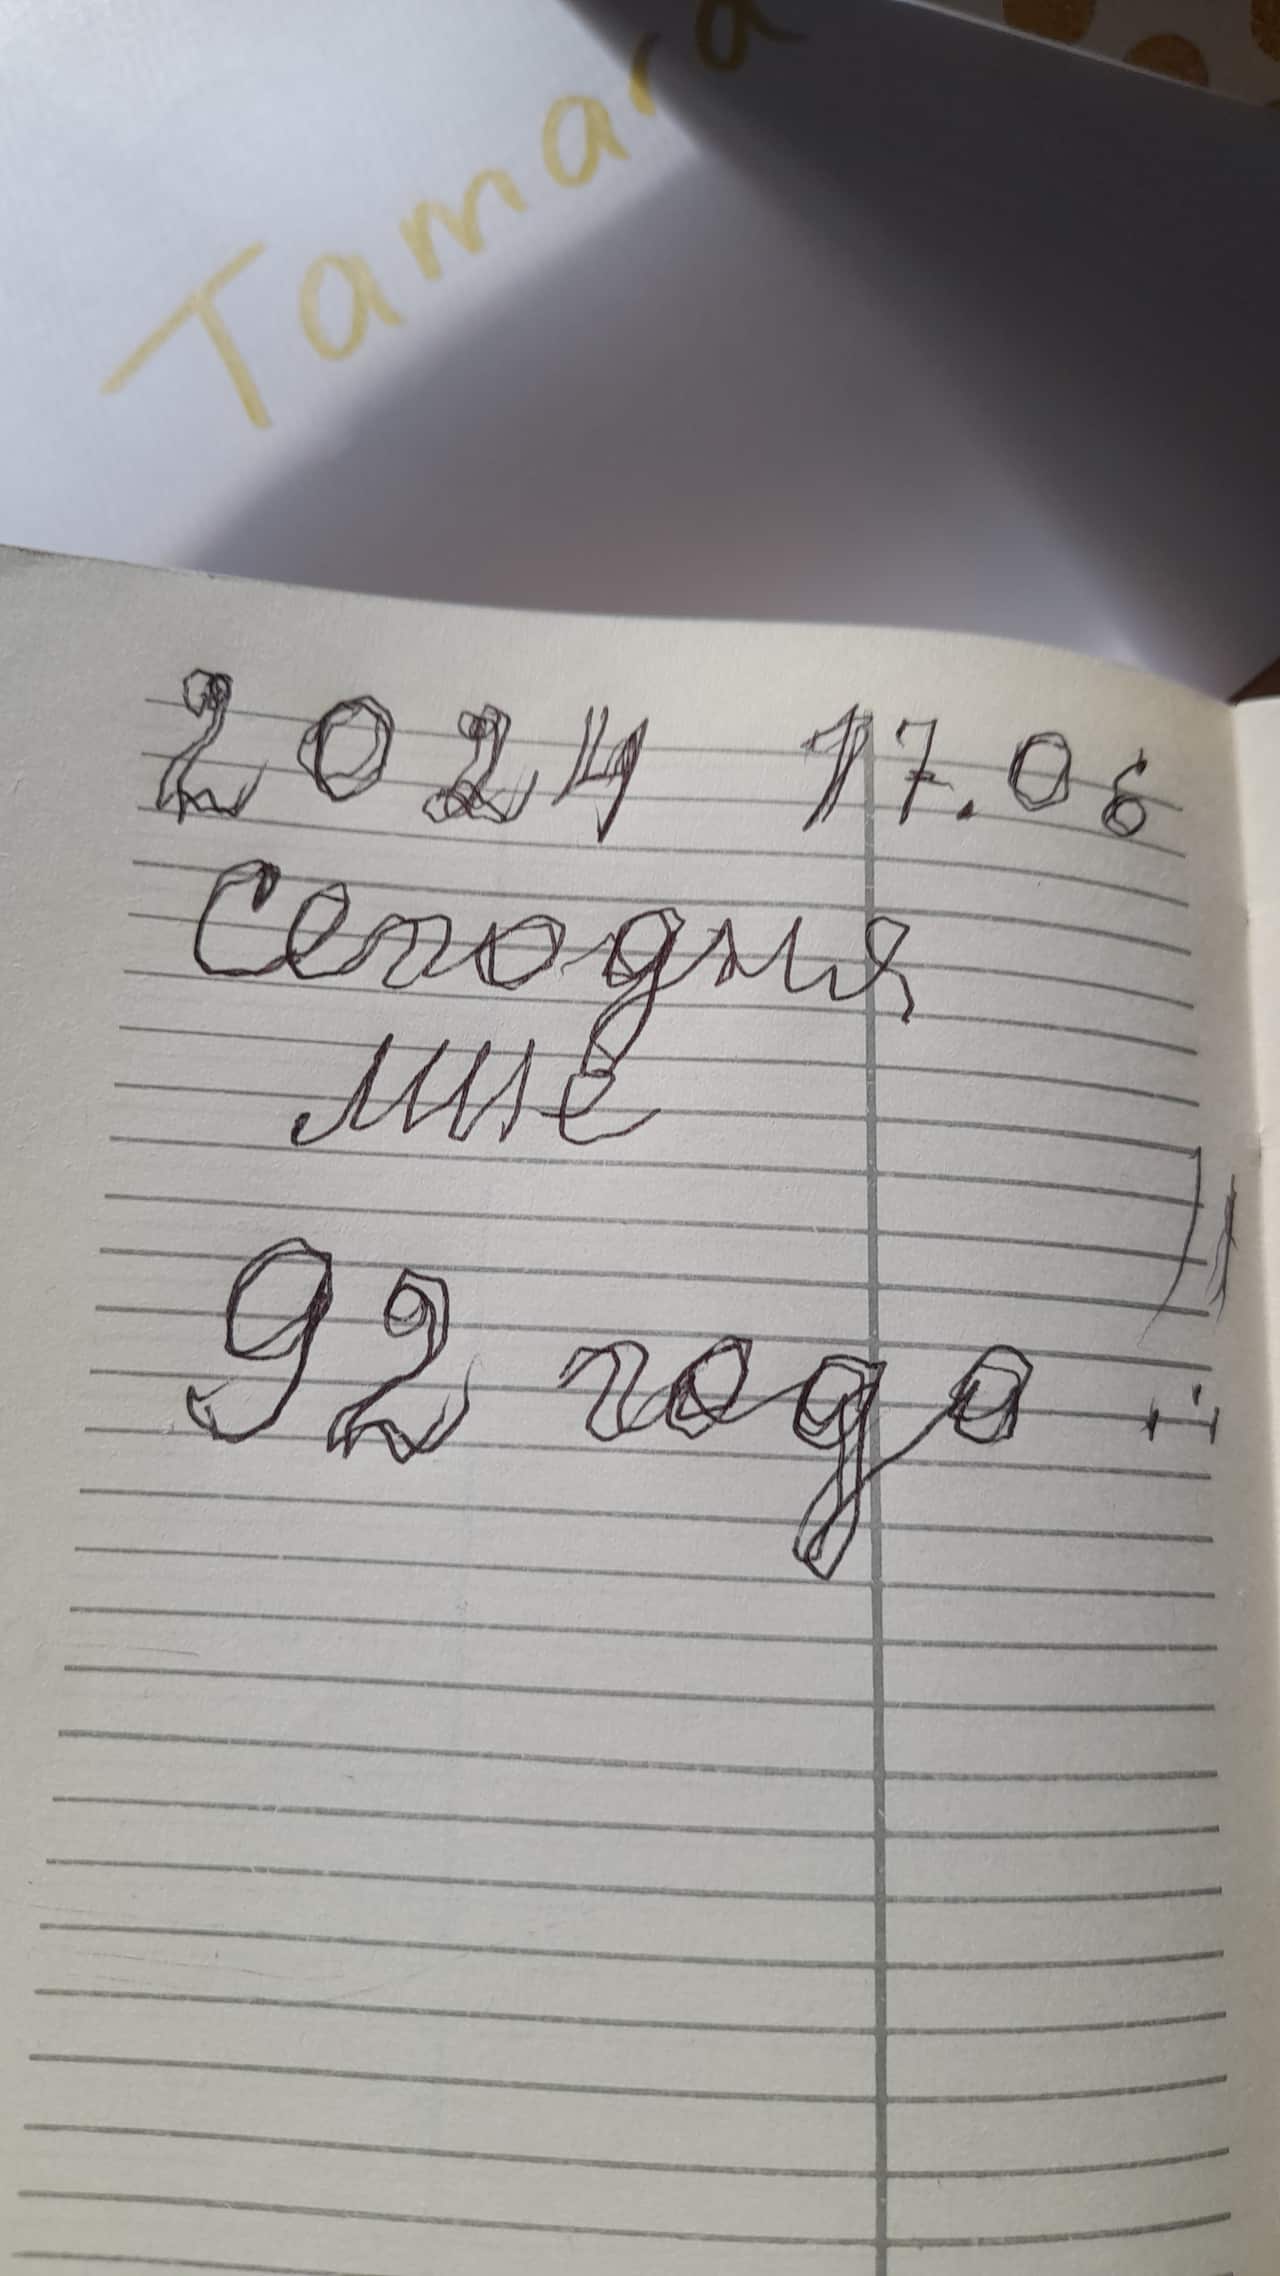 Tamara
2024 17.06
Сегодня
мне
92 года